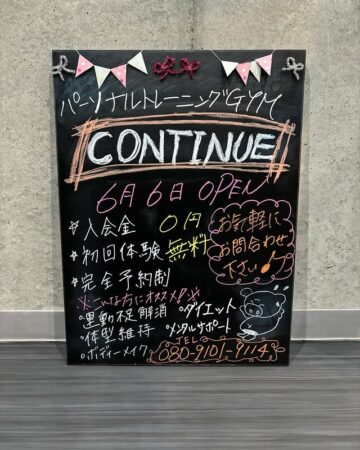 パーソナルトレーニングGYM
CONTINUE
6月6日 OPEN
☆入会金 0円
☆初回体験 無料
☆完全予約制
お気軽に
お問合わせ
下さい♪
※こんな方にオススメ!!※
○運動不足解消 ○ダイエット
○体型維持 ○メンタルサポート
○ボディーメイク
TEL
080-9101-9114